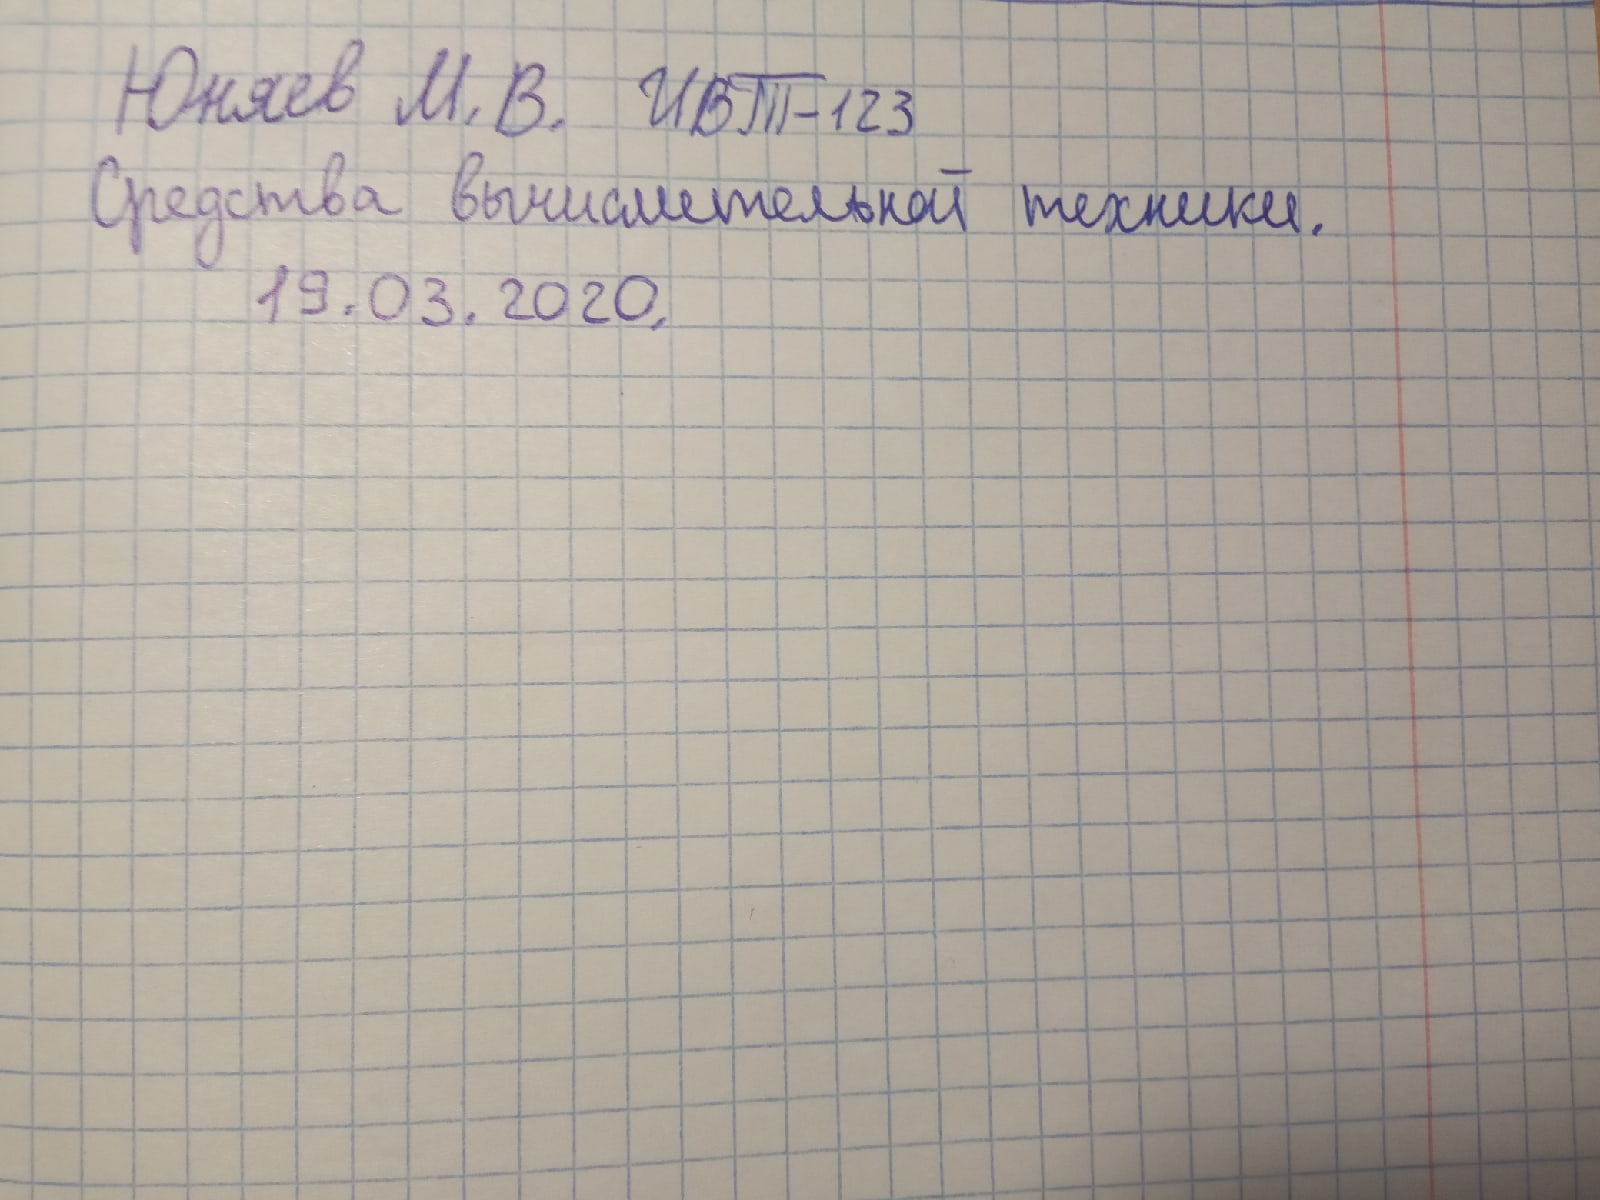 Юняев М.В. ИВТ-123
Средства вычислительной техники.
19.03.2020.